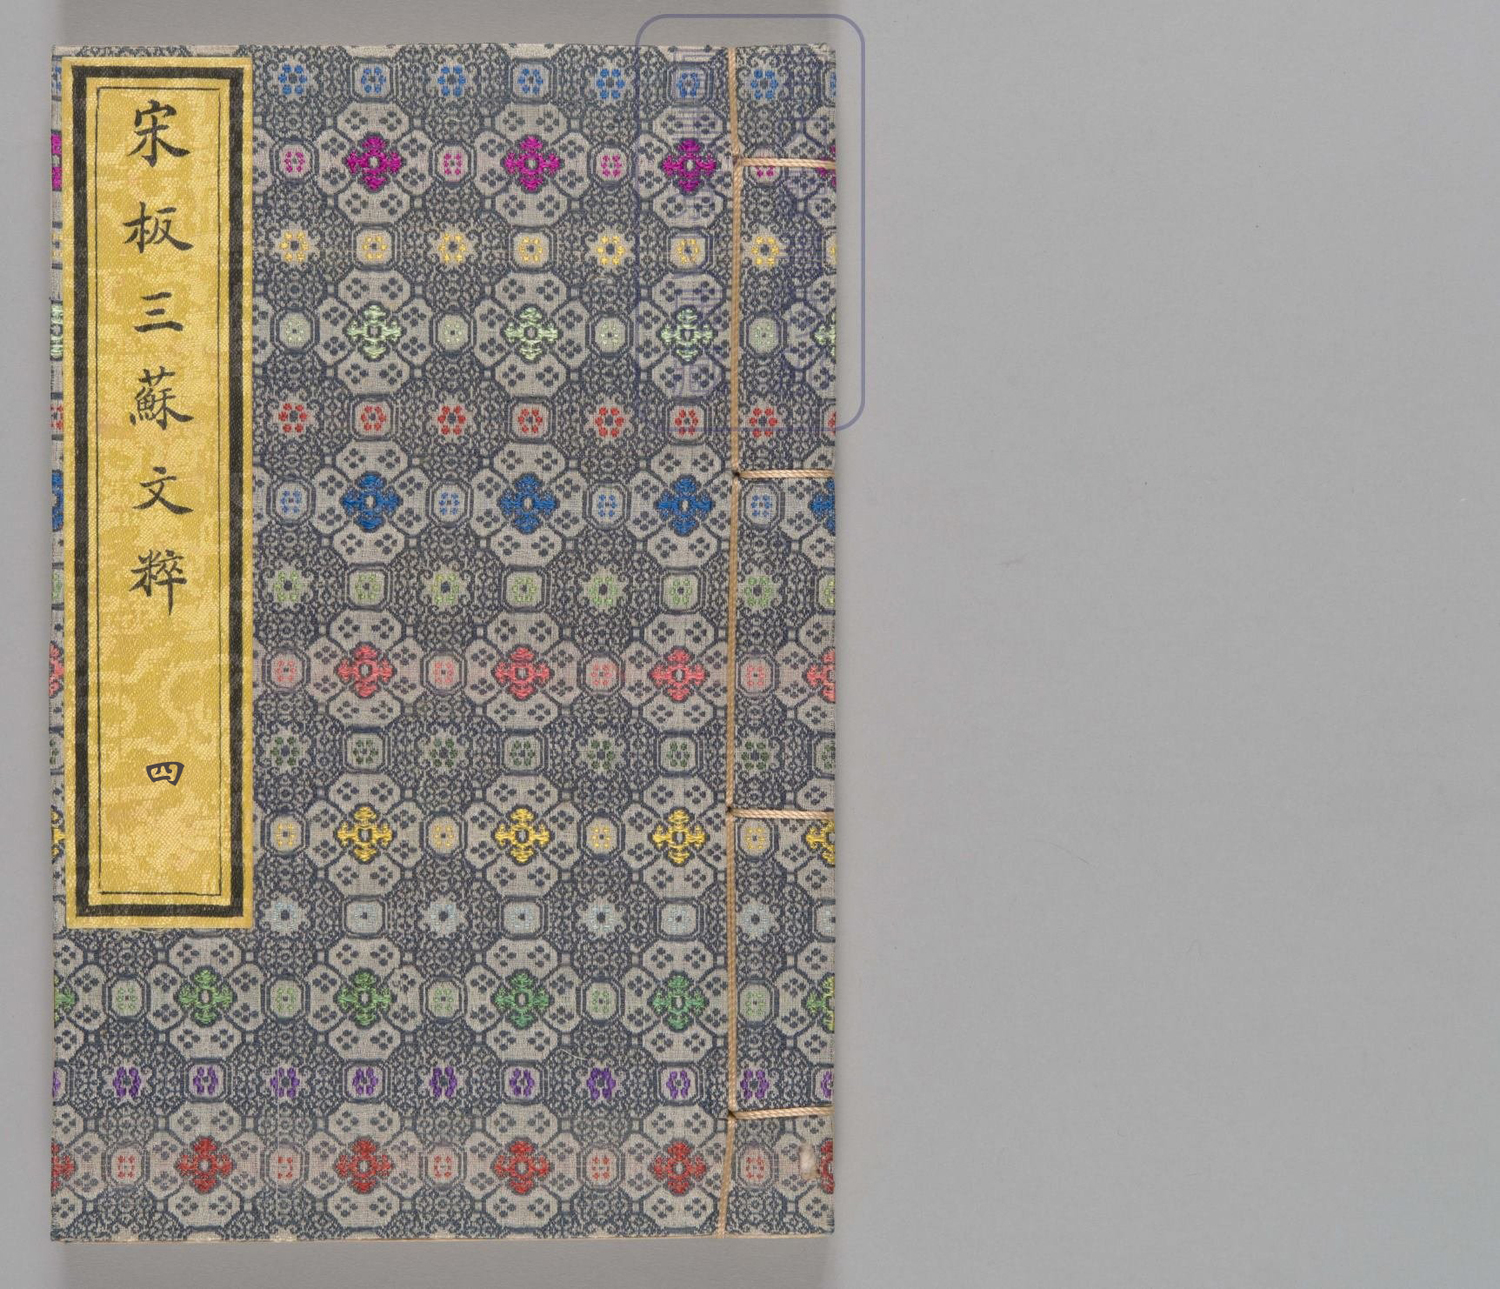 宋板三蘇文粹 四